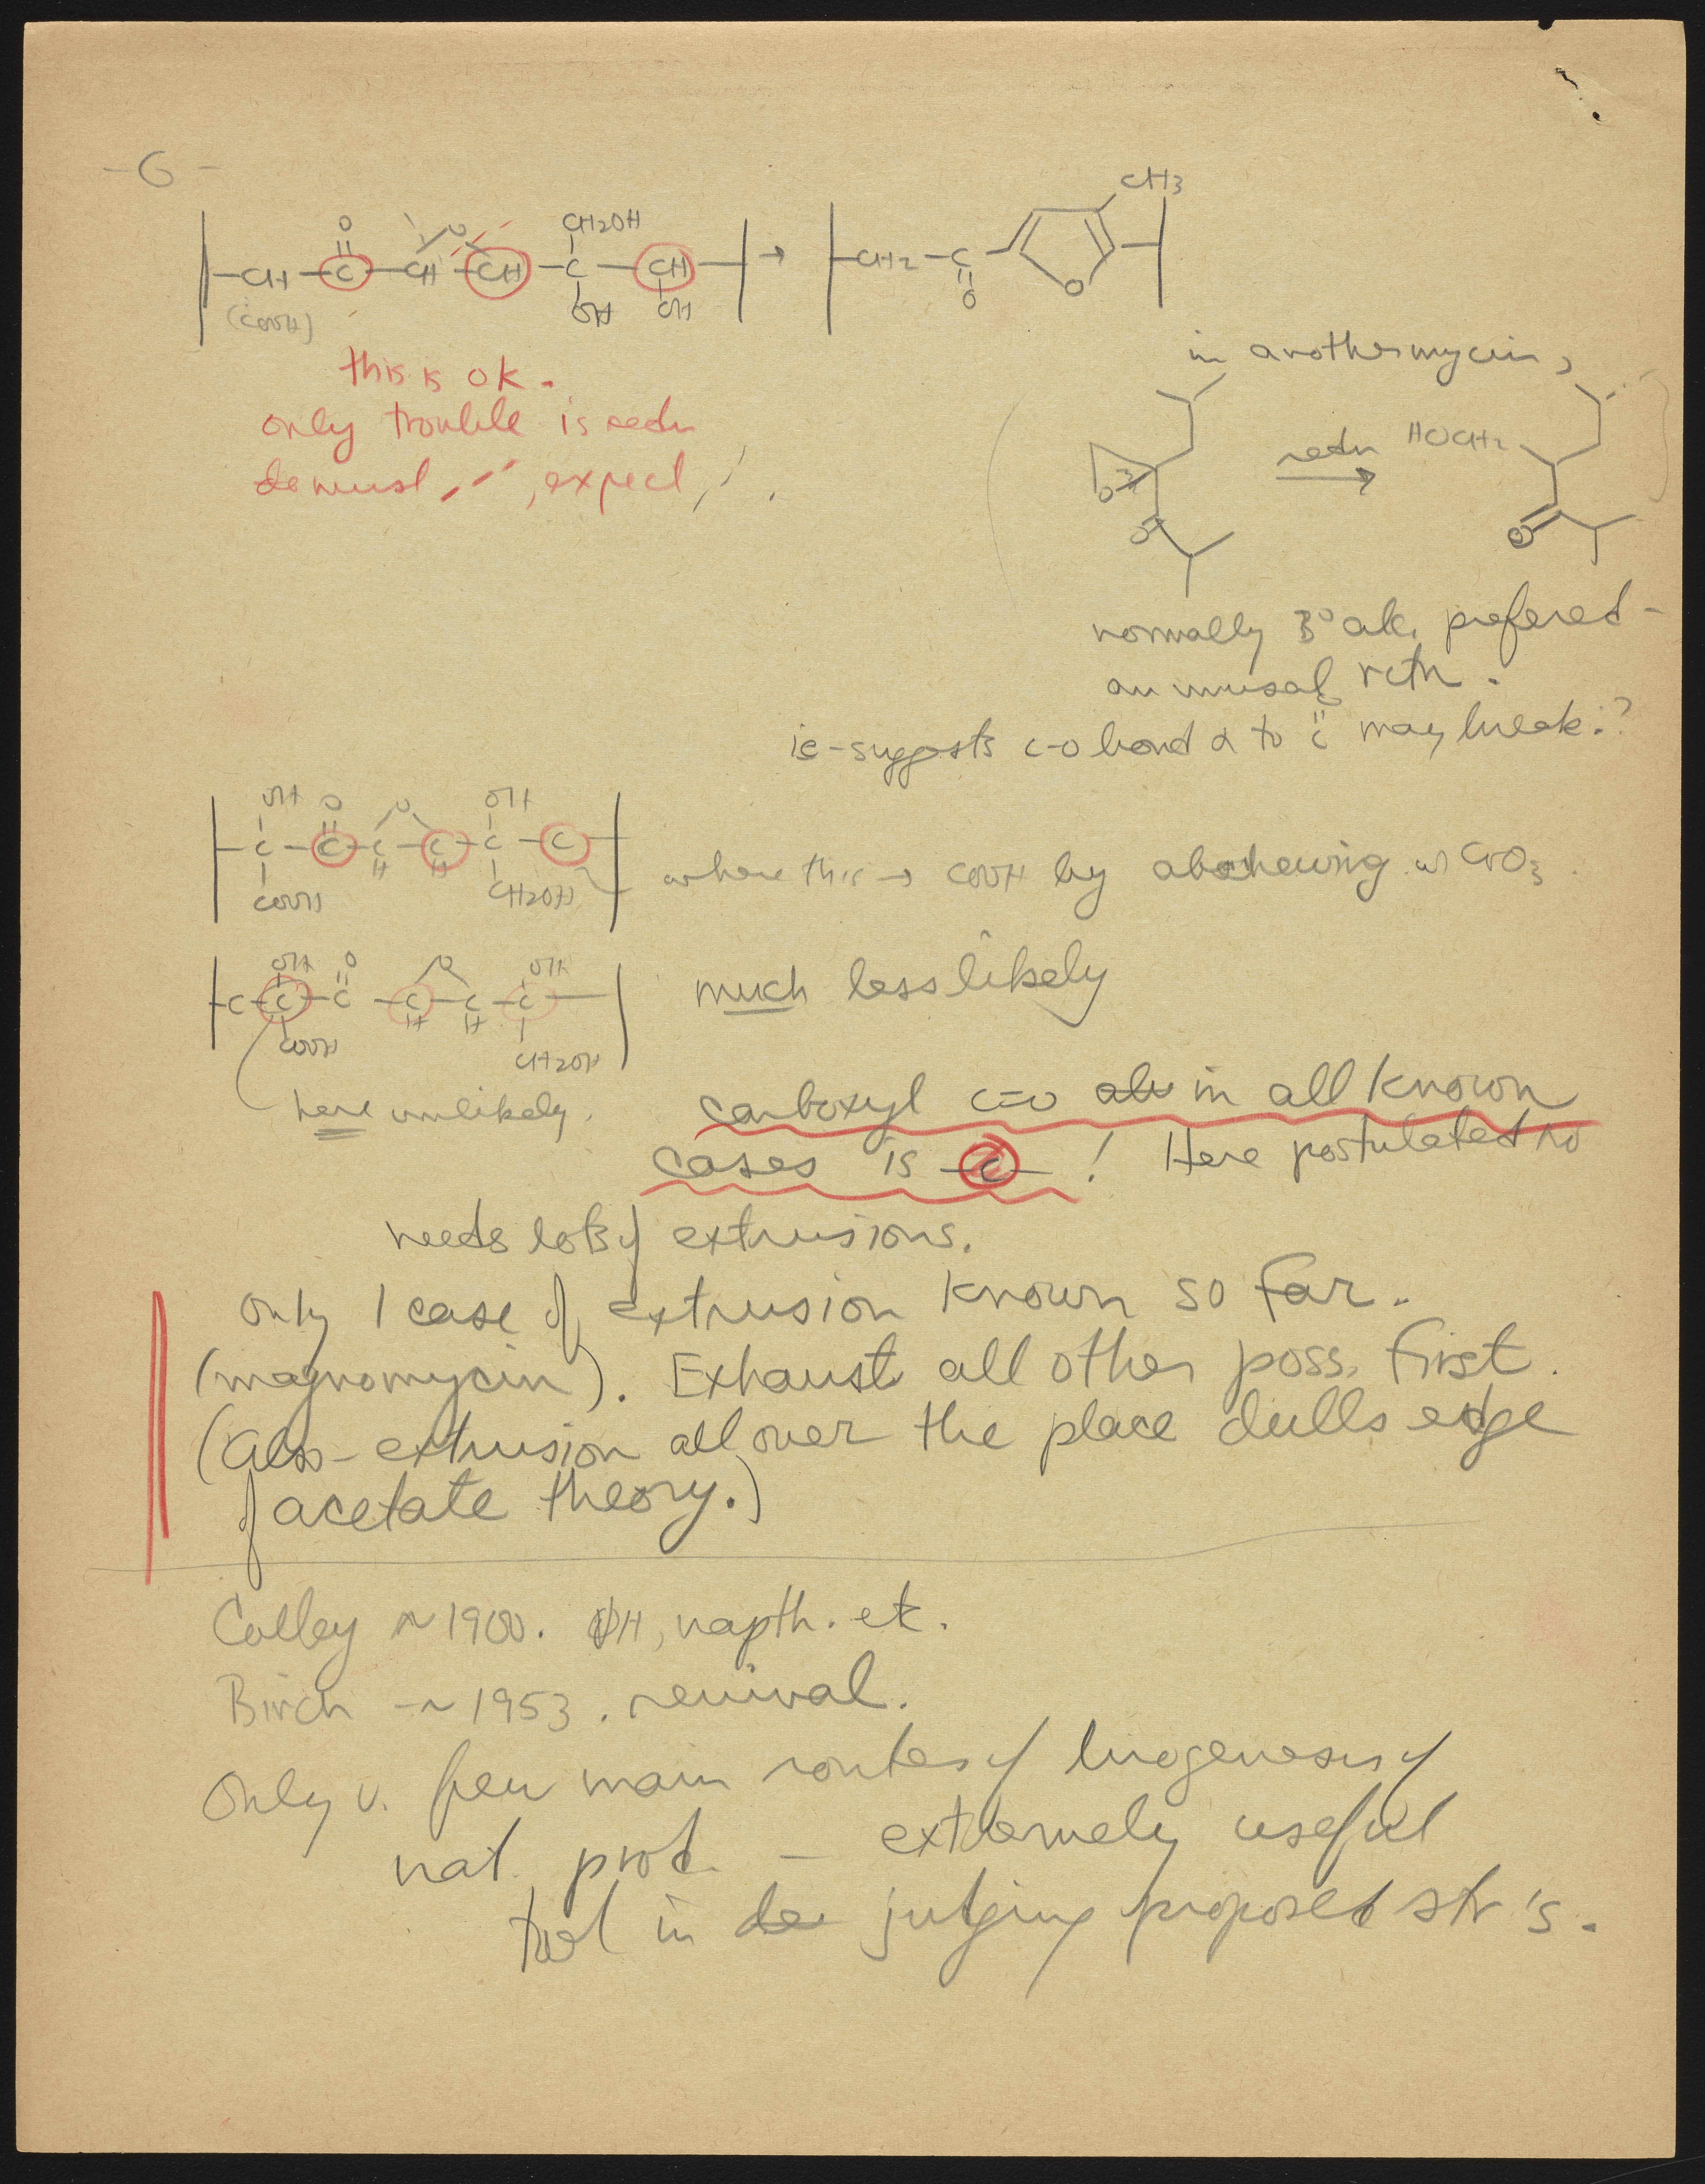 -6-
CH3
O O CH2OH
-CH-C-CH-CH-C-CH- → -CH2-C- O
(COOH) OH OH O
this is ok.
only trouble is redn
must, expect
in anothermycin,
O O redn → HOCH2 O
normally 3° alc. prefered -
an unusal rctn.
ie-suggests c-o bond α to C may break?
OH O O OH
-C-C-C-C-C-C-
COOH H H CH2OH
where this → COOH by w CrO3.
OH O O OH
-C-C-C-C-C-C-
COOH H H CH2OH
much less likely
here unlikely.
carboxyl c=o in all known
cases is -C-! Here postulated no
needs lots of extrusions.
Only 1 case of extrusion known so far.
(magnomycin). Exhaust all other poss. first.
(Also - extrusion all over the place dulls edge
of acetate theory.)
Colley ~1900. ΦH, napth. etc.
Birch -~1953. revival.
Only v. few main routes of biogenesis of
nat. prod. - extremely useful
tool in judging proposed str's.